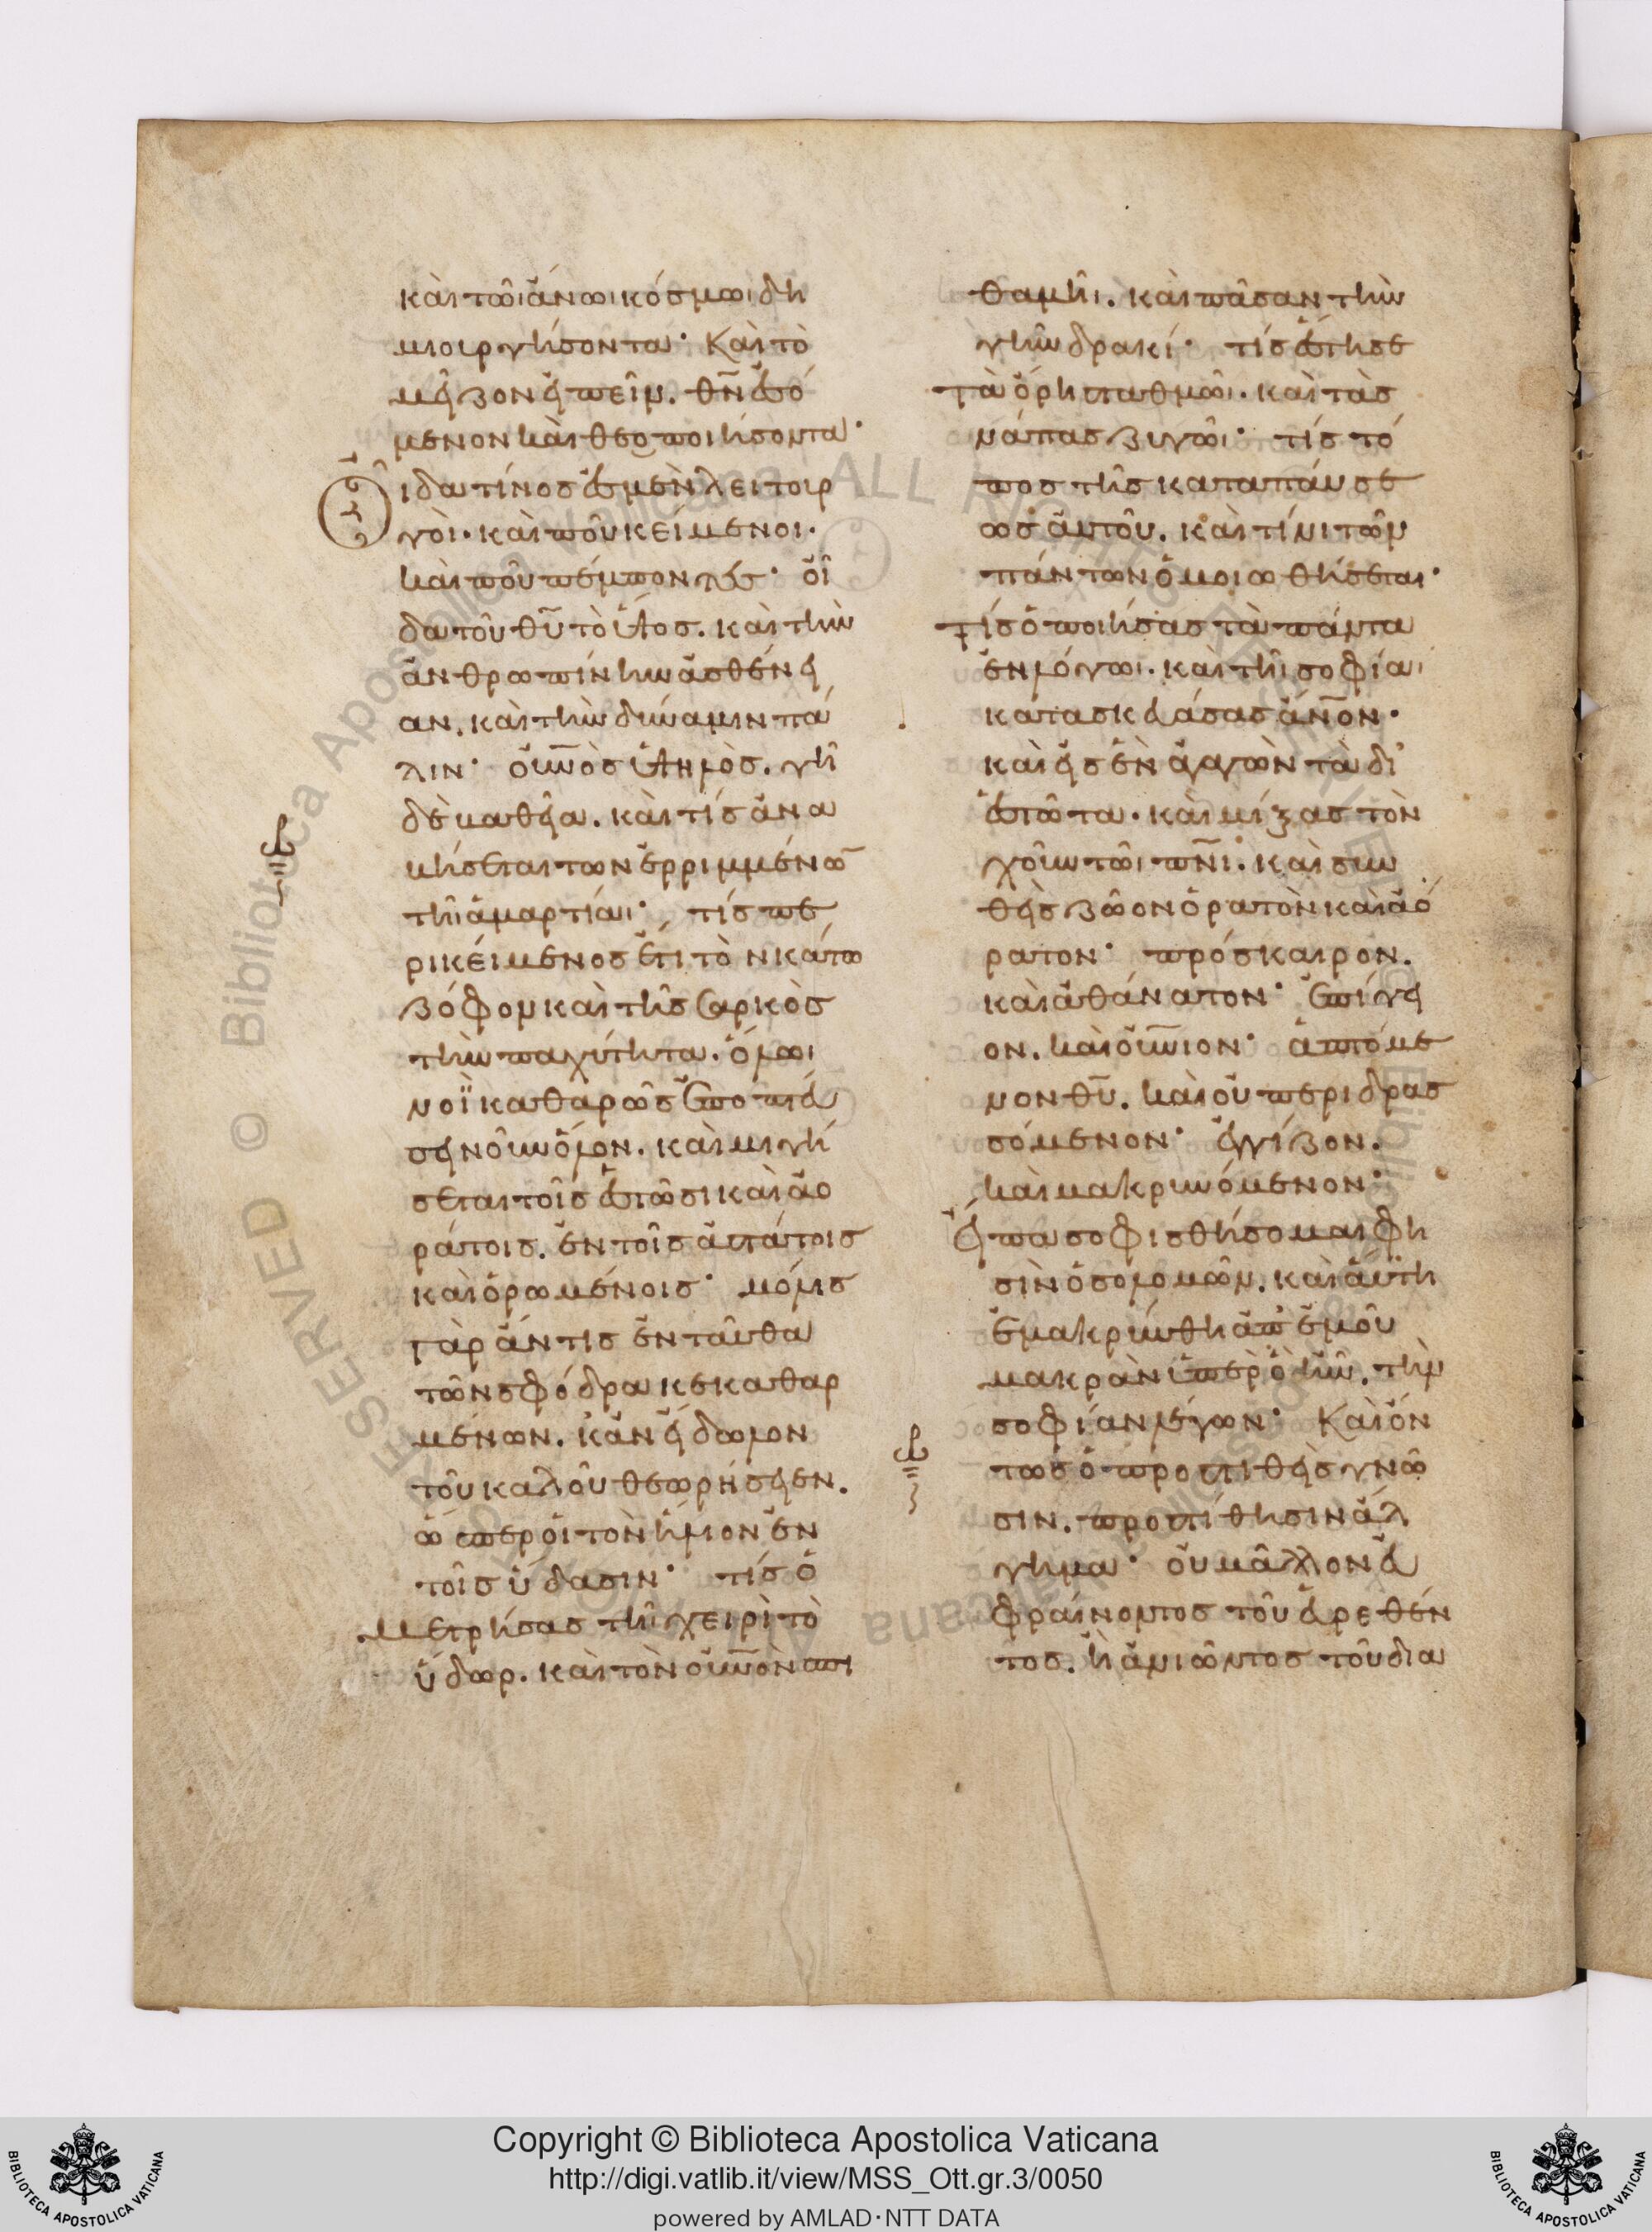 καὶ τῶι ἄνωι κόσμωι δη
μιουργήσοντα· Καὶ τὸ
μεῖζον εἰπεῖν. θ̅ν̅ ἐσό
μενον καὶ θεοποιήσοντα·
Οἶδα τίνος ἐσμὲν λειτουρ
γοὶ· καὶ ποῦ κείμενοι·
καὶ ποῦ πέμποντες· οἶ
δα τοῦ θ̅υ̅ τὸ ὕψος. καὶ τὴν
ἀνθρωπίνην ἀσθένει
αν. καὶ τὴν δύναμιν πά
λιν· ο̅υ̅ν̅ὸς ὑψηλὸς. γῆ
δὲ βαθεῖα. καὶ τίς ἀνα
βήσεται τῶν ἐρριμμένω̅
τῆι ἁμαρτίαι· τίς πε
ρικείμενος ἔτι τὸν κάτω
ζόφον καὶ τῆς σαρκὸς
τὴν παχύτητα. ὅλωι
νοῒ καθαρῶς ἐποπτεύ
σει νοῦν ὅλον. καὶ μιγή
σεται τοῖς ἑστῶσι καὶ ἀο
ράτοις. ἐν τοῖς ἀστάτοις
καὶ ὁρωμένοις· μόλις
γὰρ ἄν τις ἐνταῦθα
τῶν σφόδρα κεκαθαρ
μένων. κἂν εἴδωλον
τοῦ καλοῦ θεωρήσειεν.
ὥσπερ οἱ τὸν ἥλιον ἐν
τοῖς ὕδασιν· τίς ὁ
Μετρήσας τῆι χειρὶ τὸ
ὕδωρ. καὶ τὸν ο̅υ̅ν̅ὸν σπι
θαμῆι. καὶ πᾶσαν τὴν
γῆν δρακί· τίς ἔστησε
Τὰ ὄρη σταθμῶι. καὶ τὰς
νάπας ζυγῶι· τίς τό
πος τῆς καταπαύσε
ως αὐτοῦ. καὶ τίνι τῶν
πάντων ὁμοιωθήσεται·
Τίς ὁ ποιήσας τὰ πάντα
ἐν λόγωι. καὶ τῆι σοφίαι
κατασκευάσας ἄ̅ν̅ο̅ν·
καὶ εἰς ἓν ἀγαγὼν τὰ δι
εστῶτα. καὶ μίξας τὸν
χοῦν τῶι π̅ν̅ι̅. καὶ συν
θεὶς ζῶον ὁρατὸν καὶ ἀό
ρατον· πρόσκαιρον.
καὶ ἀθάνατον· ἐπίγει
ον. καὶ ο̅υ̅ν̅ιον· ἁπτόμε
νον θ̅υ̅. καὶ οὐ περιδρασ
σόμενον· ἐγγίζον.
καὶ μακρυνόμενον·
Εἶπα σοφισθήσομαι φη
σὶν ὁ σολομῶν. καὶ αὕτη
ἐμακρύνθη ἀπ' ἐμοῦ
μακρὰν ὑπὲρ ὃ ἦν. τὴν
σοφίαν λέγων· Καὶ ὄν
τως ὁ προστιθεὶς γνῶ
σιν. προστίθησιν ἄλ
γημα· οὐ μᾶλλον εὐ
φραίνοντος τοῦ εὑρεθέν
τος. ἢ ἀνιῶντος τοῦ δια
Copyright © Biblioteca Apostolica Vaticana
http://digi.vatlib.it/view/MSS_Ott.gr.3/0050
powered by AMLAD·NTT DATA